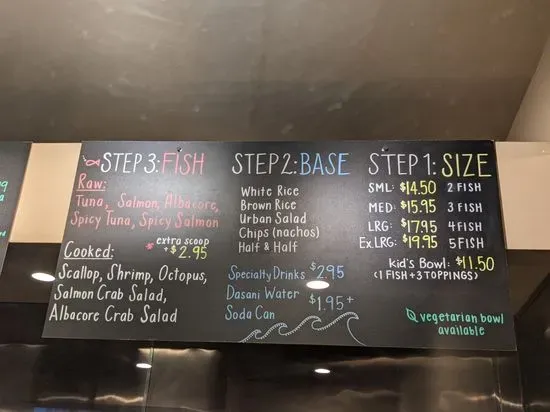 STEP 3: FISH
Raw:
Tuna, Salmon, Albacore,
Spicy Tuna, Spicy Salmon
* extra scoop
+$2.95
Cooked:
Scallop, Shrimp, Octopus,
Salmon Crab Salad,
Albacore Crab Salad
STEP 2: BASE
White Rice
Brown Rice
Urban Salad
Chips (nachos)
Half & Half
Specialty Drinks $2.95
Dasani Water
Soda Can
$1.95+
STEP 1: SIZE
SML: $14.50 2 FISH
MED: $15.95 3 FISH
LRG: $17.95 4 FISH
Ex.LRG: $19.95 5 FISH
Kid's Bowl: $11.50
(1 FISH + 3 TOPPINGS)
vegetarian bowl
available